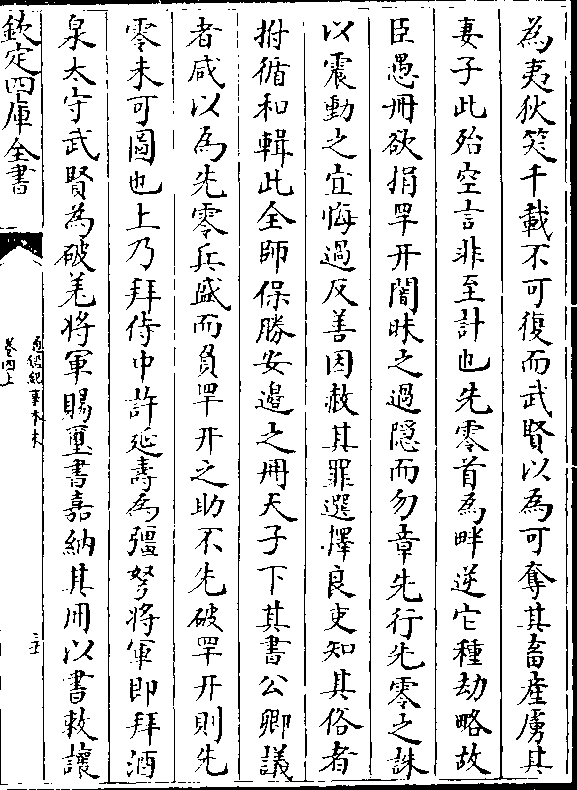 為夷狄笑千載不可復而武賢以為可奪其畜産虜其
妻子此殆空言非至計也先零首為畔逆它種劫略故
臣愚冊欲捐罕幵闇昧之過隠而勿章先行先零之誅
以震動之宜悔過反善因赦其罪選擇良吏知其俗者
拊循和輯此全師保勝安邉之冊天子下其書公卿議
者咸以為先零兵盛而負罕幵之助不先破罕幵則先
零未可圖也上乃拜侍中許延壽為彊弩將軍即拜酒
泉太守武賢為破羌將軍賜璽書嘉納其冊以書敕讓
欽定四庫全書
通鑑紀事本末
卷四上